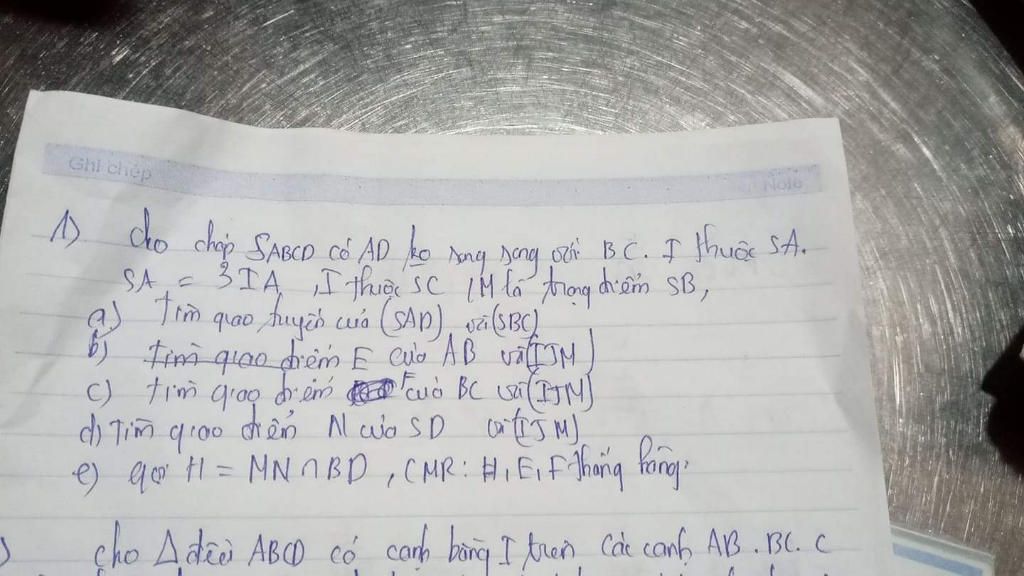 Ghi chép
Note
1) cho chóp SABCD có AD ko song song với BC. I thuộc SA.
SA = 3IA, I thuộc SC, M là trung điểm SB,
a) Tìm giao tuyến của (SAD) với (SBC)
b) tìm giao điểm E của AB với (IJM)
c) tìm giao điểm F của BC với (IJM)
d) Tìm giao điểm N của SD với (IJM)
e) gọi H = MN ∩ BD, CMR: H, E, F thẳng hàng.
) cho Δ đều ABCD có cạnh bằng I trên các cạnh AB. BC. C